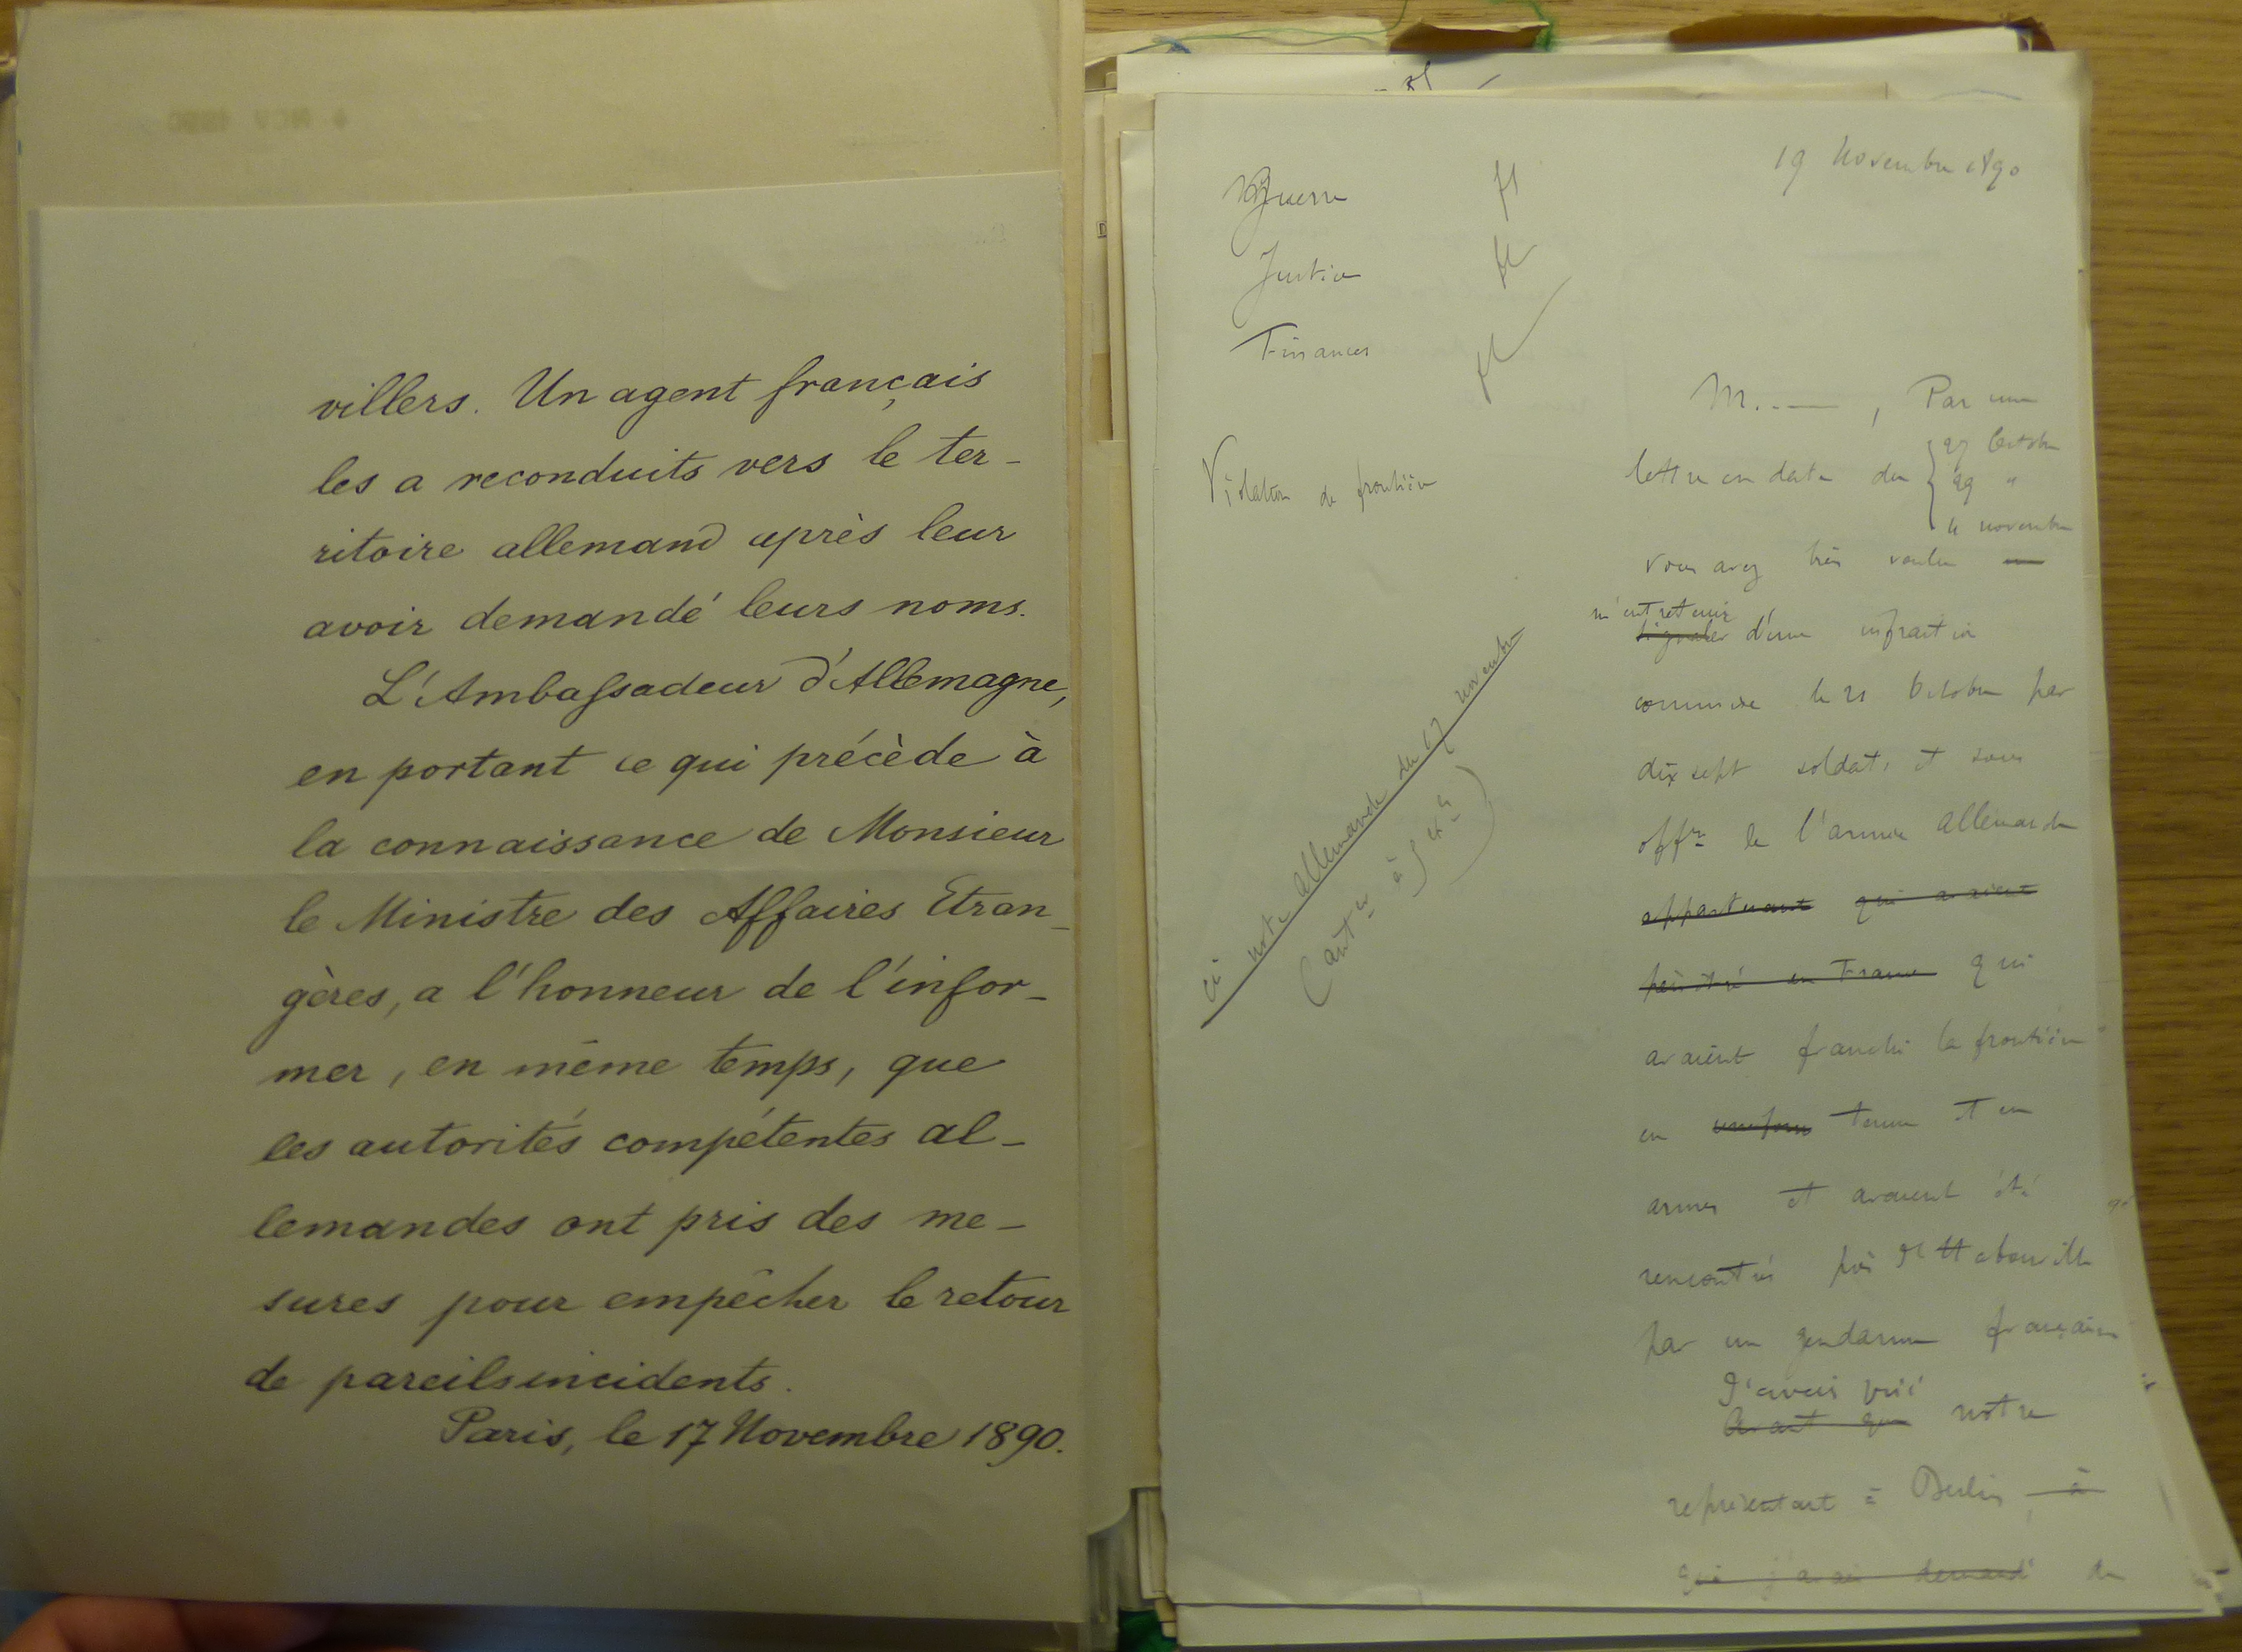 villers. Un agent français
les a reconduits vers le ter-
ritoire allemand après leur
avoir demandé leurs noms.
L'Ambassadeur d'Allemagne,
en portant ce qui précède à
la connaissance de Monsieur
le Ministre des Affaires Etran-
gères, a l'honneur de l'infor-
mer, en même temps, que
les autorités compétentes al-
lemandes ont pris des me-
sures pour empêcher le retour
de pareils incidents.
Paris, le 17 Novembre 1890.
19 Novembre 1890
Guerre
Justice
Finances
Violation de frontière
ci note allemande du 17 novembre
M. — , Par une
lettre en date du
27 Octobre
29 "
4 novembre
vous avez bien voulu
m'entretenir
signaler d'une infraction
commise le 21 Octobre par
dix sept soldats et sous
offrs de l'armée allemande
appartenant qui avaient
pénétré en France qui
avaient franchi la frontière
en uniforme tenue et en
armes et avaient été
rencontrés près
par un gendarme français
J'avais prié
Avant que notre
représentant à Berlin à
qui j'avais demandé de